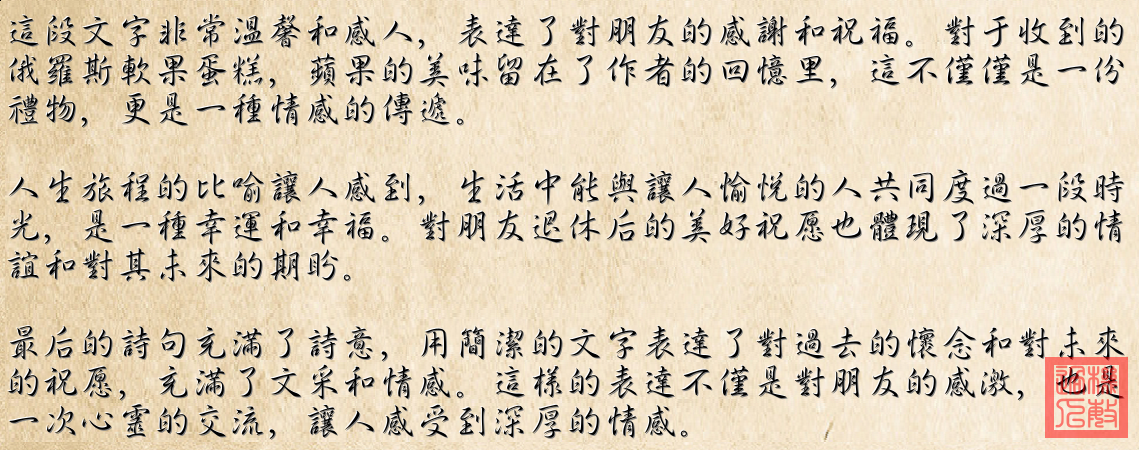 這段文字非常溫馨和感人，表達了對朋友的感謝和祝福。對于收到的
俄羅斯軟果蛋糕，蘋果的美味留在了作者的回憶里，這不僅僅是一份
禮物，更是一種情感的傳遞。
人生旅程的比喻讓人感到，生活中能與讓人愉悅的人共同度過一段時
光，是一種幸運和幸福。對朋友退休后的美好祝愿也體現了深厚的情
誼和對其未來的期盼。
最后的詩句充滿了詩意，用簡潔的文字表達了對過去的懷念和對未來
的祝愿，充滿了文采和情感。這樣的表達不僅是對朋友的感激，也是
一次心靈的交流，讓人感受到深厚的情感。